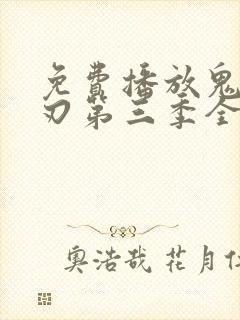 免費播放鬼
刃第三季全
奧浩哉 花月仁